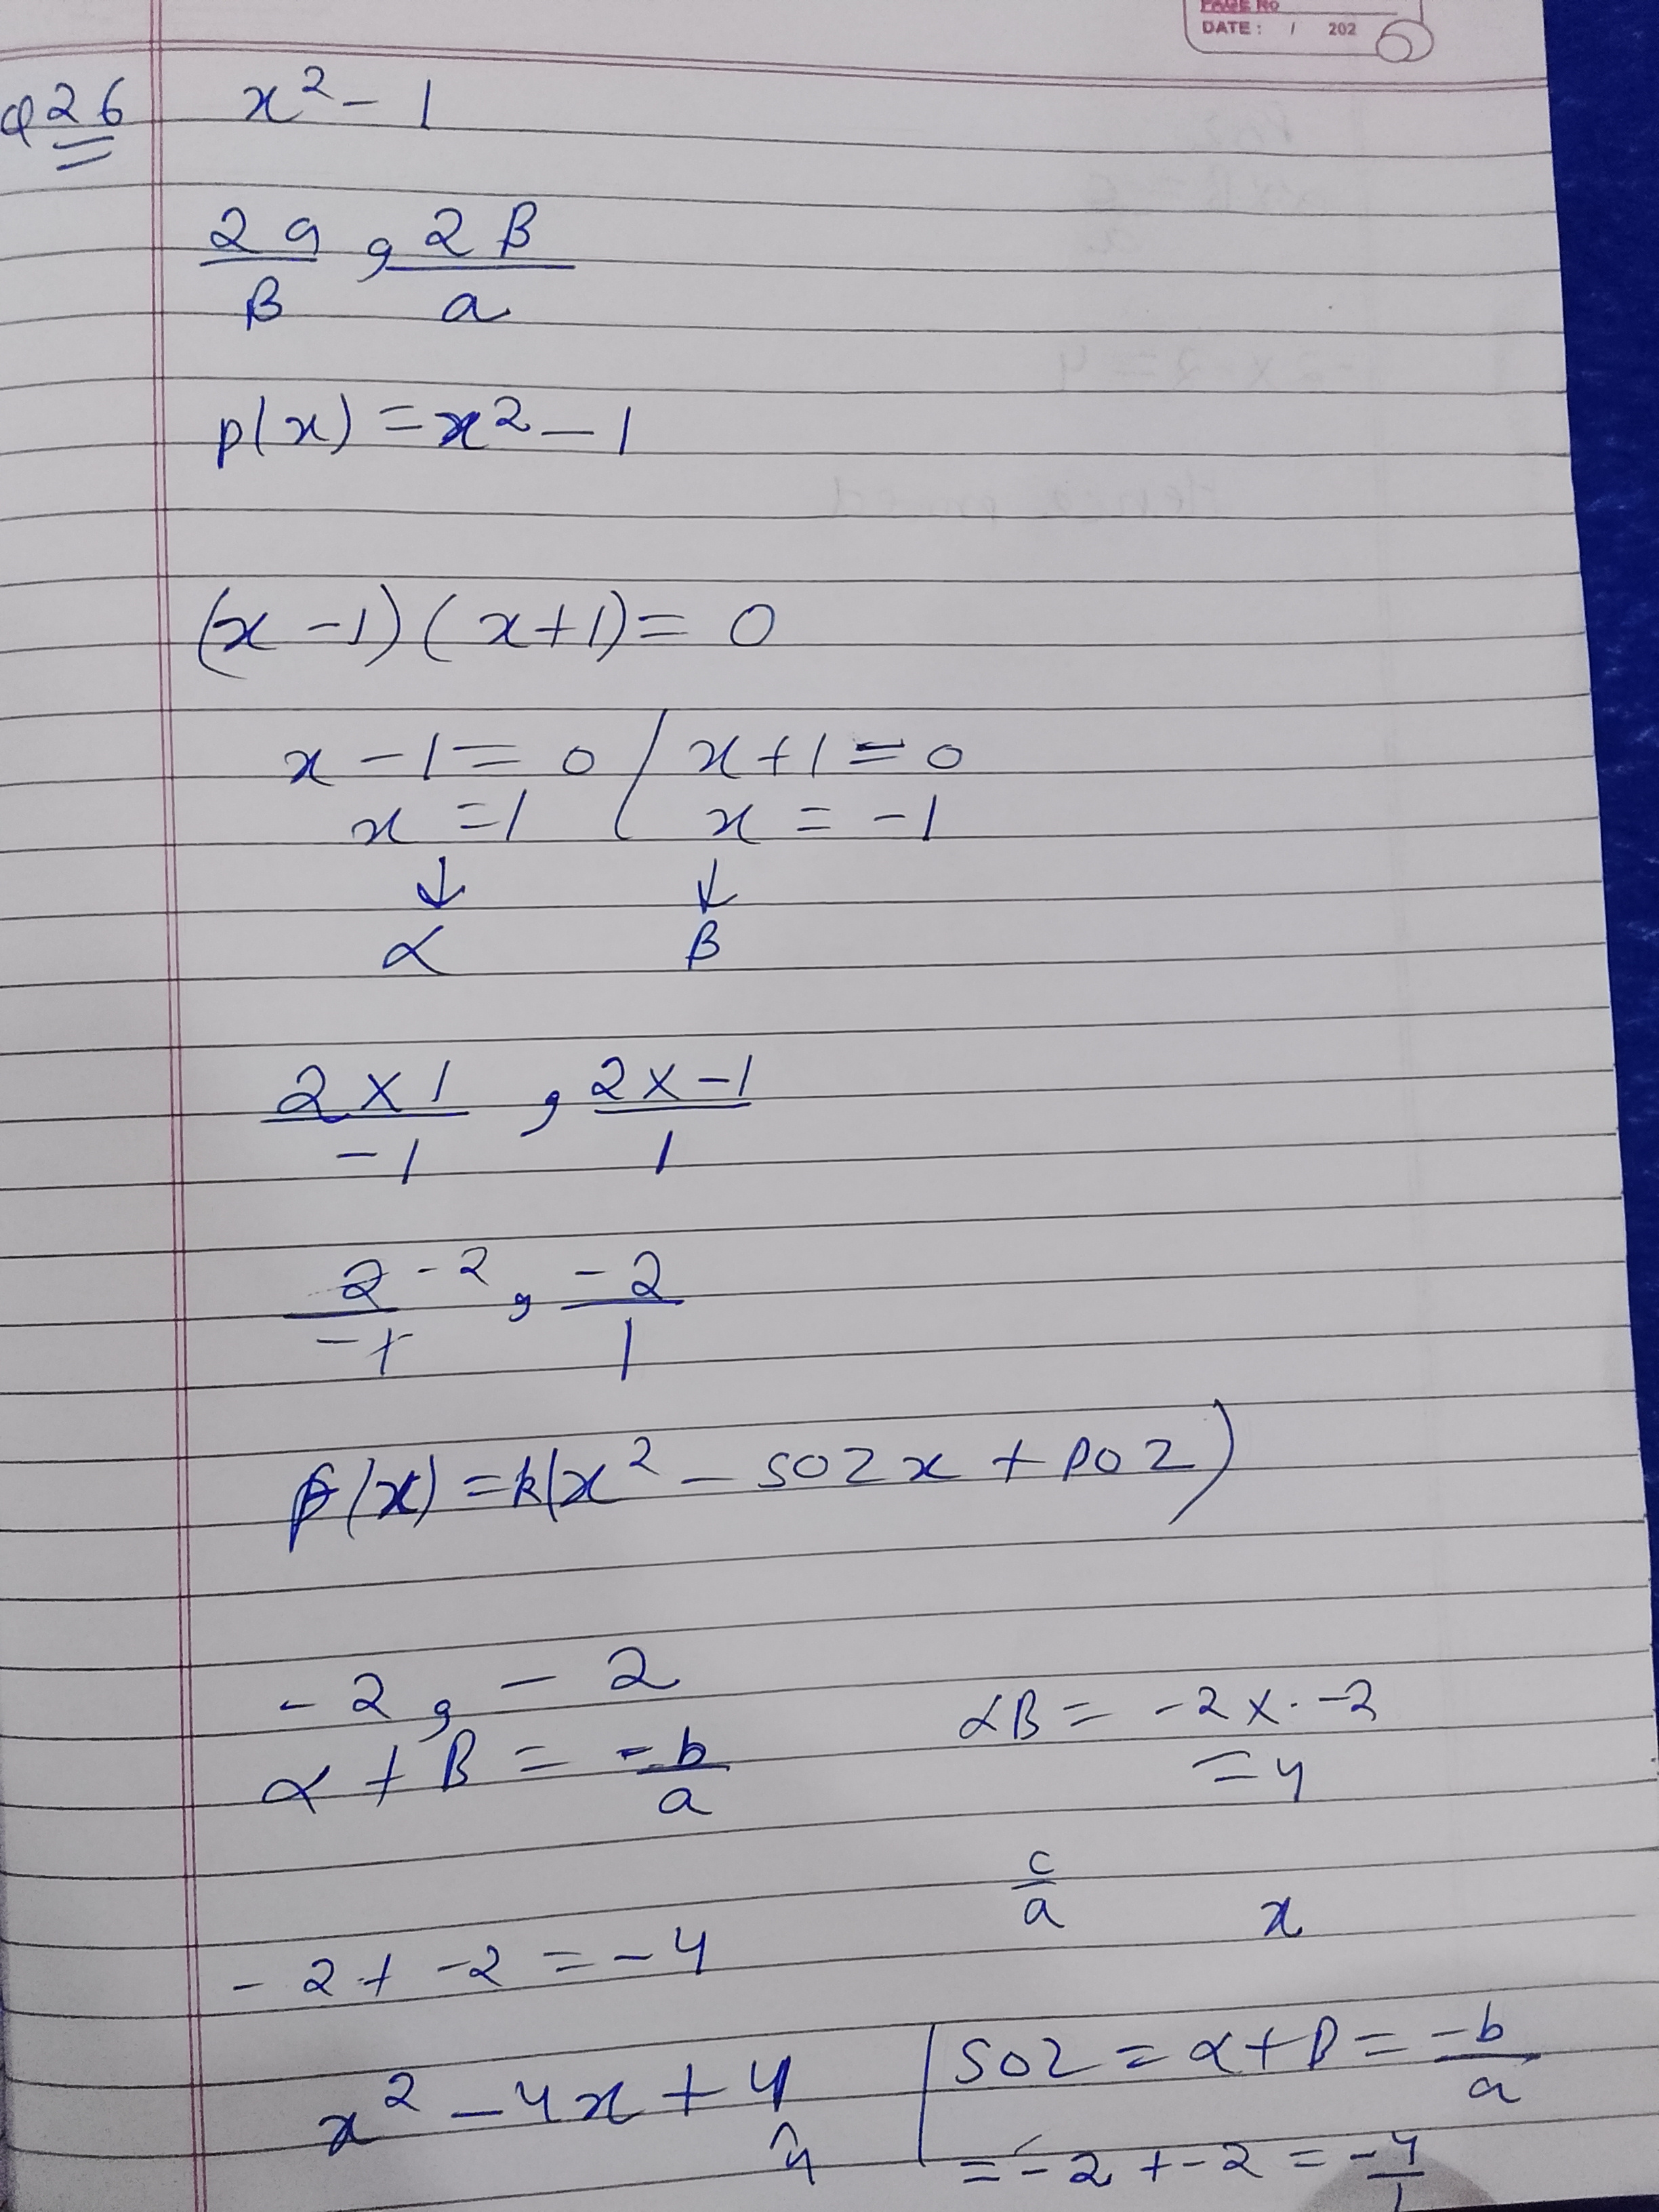 PAGE No
DATE : / 202
Q26 x² - 1
2a/β , 2β/a
p(x) = x² - 1
(x - 1) (x + 1) = 0
x - 1 = 0 / x + 1 = 0
x = 1 x = -1
↓ ↓
α β
2 x 1/-1 , 2 x -1/1
2/-1 -2 , -2/1
p(x) = k(x² - SOZx + POZ)
-2 , -2
αβ = -2 x - -2
= 4
α + β = -b/a
c/a x
-2 + -2 = -4
x² - 4x + 4
SOZ = α + β = -b/a
= -2 + -2 = -4/1